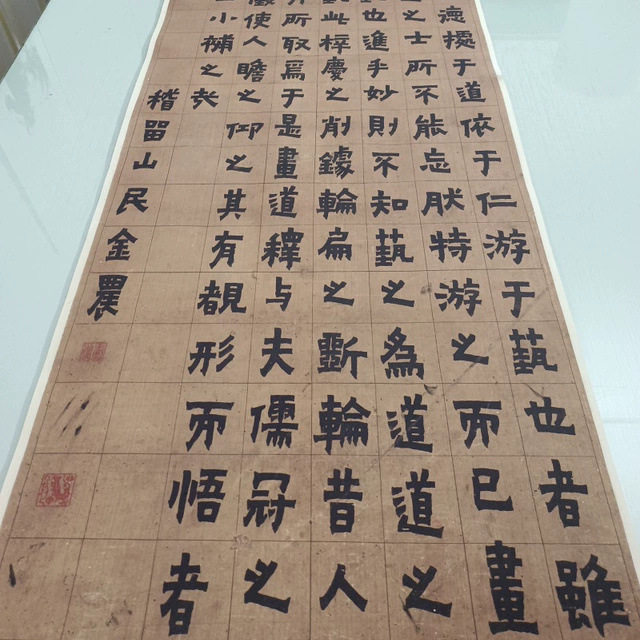 據于道依于仁游于藝也者雖
之士所不能忘肰特游之而已畫
也進乎妙則不知藝之爲道道之
此梓慶之削鐻輪扁之斲輪昔人
所取焉于是畫道釋与夫儒冠之
使人瞻之仰之其有覩形而悟者
小補之哉
稽留山民金農